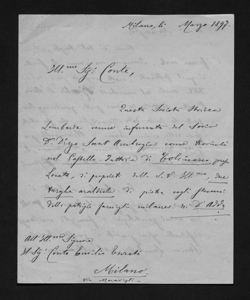 Milano, li Marzo 1897
Ill.mo Sig. Conte,
Questa Società Storica
Lombarda venne informata dal Socio
Dr. Diego Sant'Ambrogio come trovinsi
nel Castello Fattoria di Tolcinasco presso
Locate, di proprietà della S.V. Ill.ma, due
targhe araldiche di pietra cogli stemmi
delle patrizie famiglie milanesi di D'Adda
All'Ill.mo Signore
Il Sig. Conte Emilio
Milano
Via